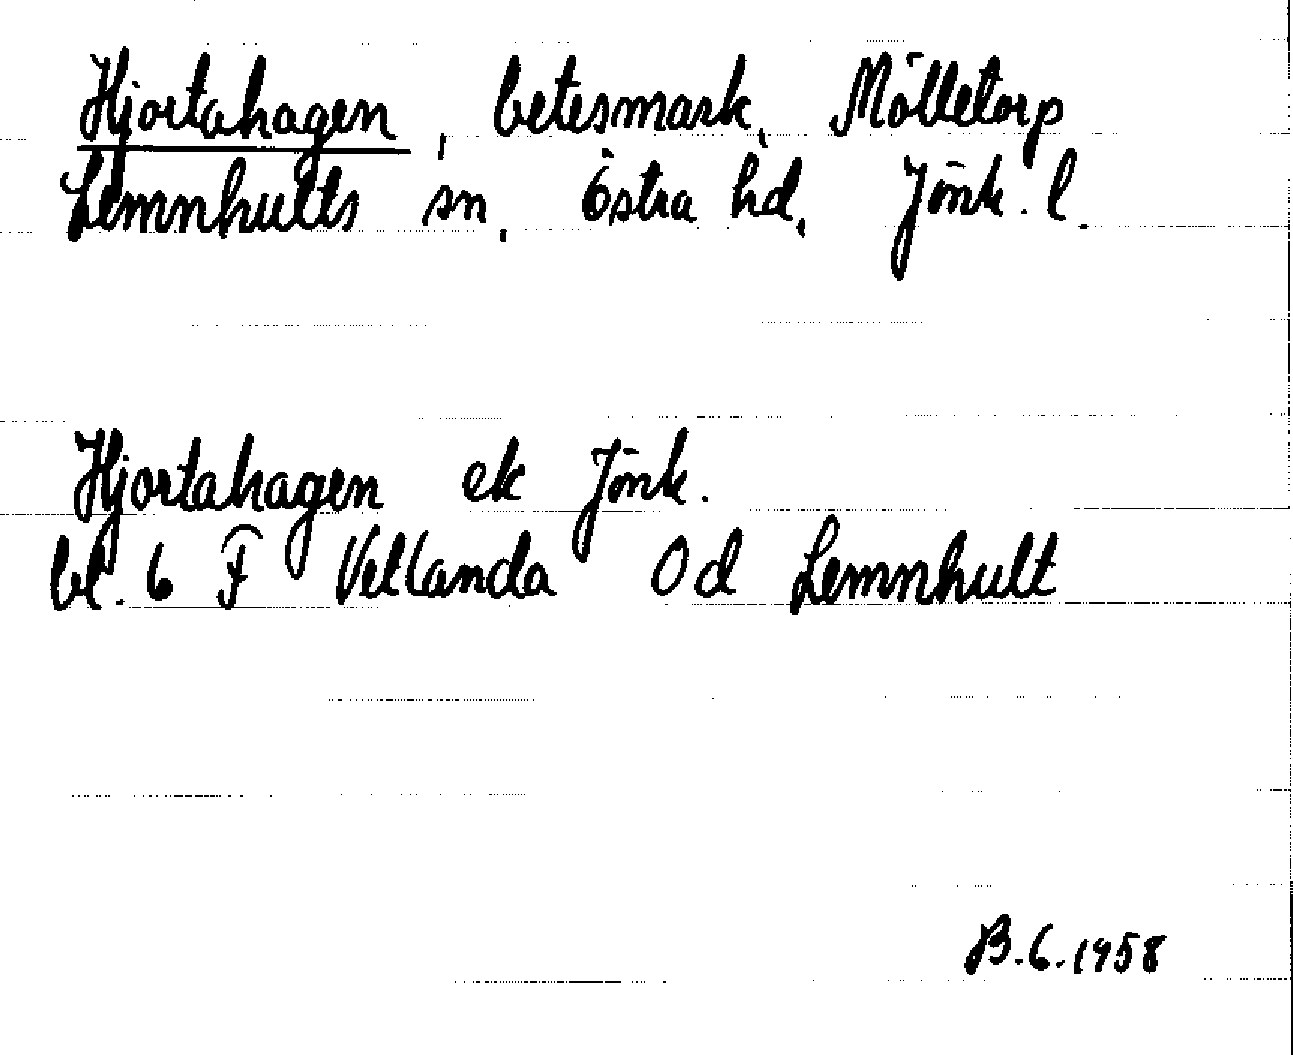 Hjortahagen, betesmark, Mölletorp
Lemnhults sn, Östra hd, Jönk. l.
Hjortahagen ek Jönk.
bl. 6 F Vetlanda Od Lemnhult
B.G. 1958